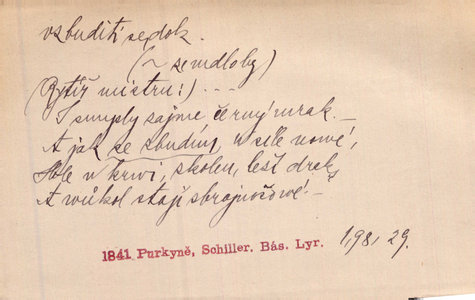 vzbuditi se dok.
(~ ze mdloby)
(Rytíř mistru:) . . .
I smysly zajme černý mrak. —
A jak se zbudím, v síle nové,
v krvi, skolen, lest drak,
A vůkol stojí zbrojnošové! —
1841 Purkyně, Schiller. Bás. Lyr. 1, 98, 29.